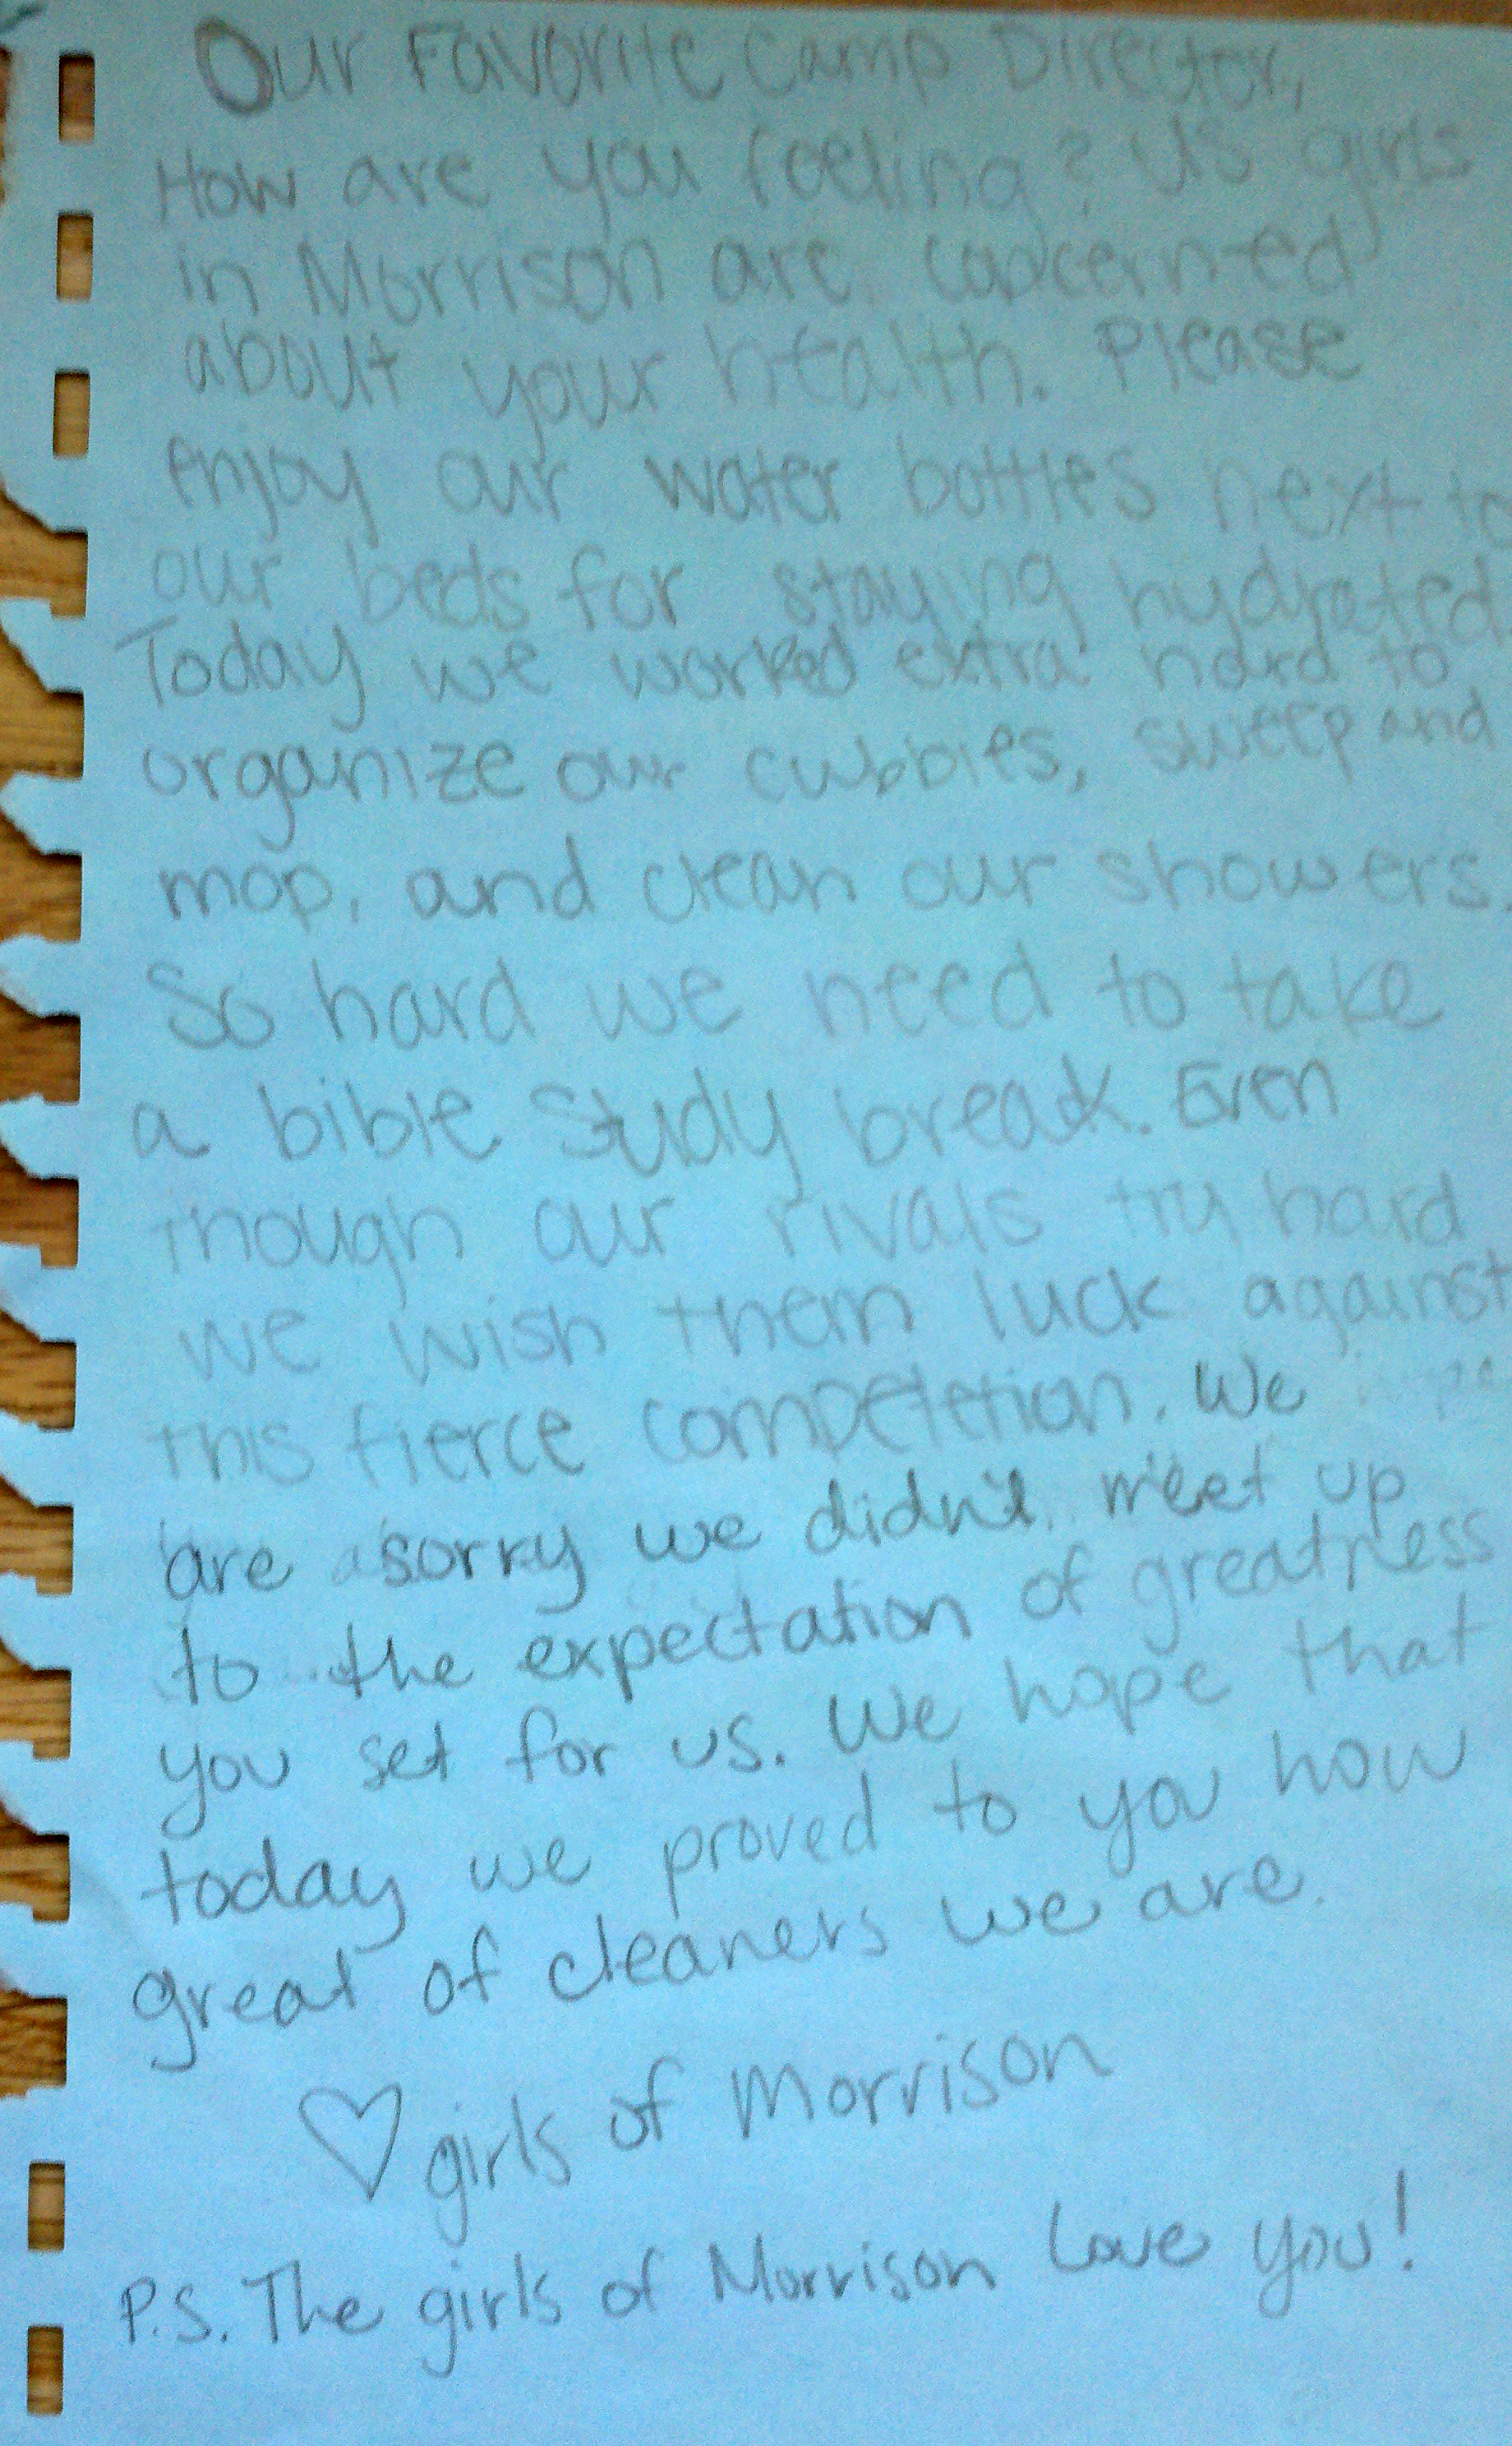 Our Favorite Camp Director,
How are you feeling? Us girls
in Morrison are concerned
about your health. Please
enjoy our water bottles next to
our beds for staying hydrated
Today we worked extra hard to
organize our cubbies, sweep and
mop, and clean our showers.
So hard we need to take
a bible study break. Even
though our rivals try hard
we wish them luck against
this fierce competetion. We
are sorry we didn't meet up
to the expectation of greatness
you set for us. We hope that
today we proved to you how
great of cleaners we are.
♡ girls of Morrison
P.S. The girls of Morrison Love you!